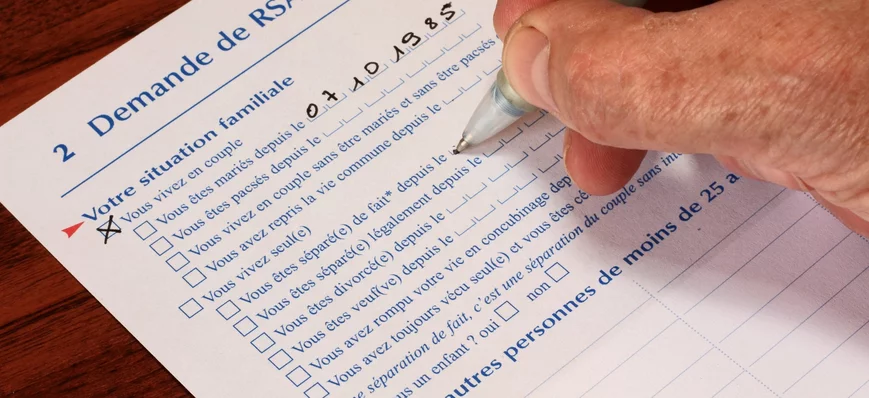 2 Demande de RSA
Votre situation familiale
Vous vivez en couple
Vous êtes mariés depuis le 07 10 1985
Vous êtes pacsés depuis le
Vous vivez en couple sans être mariés et sans être pacsés
Vous avez repris la vie commune depuis le
Vous vivez seul(e)
Vous êtes séparé(e) de fait* depuis le
Vous êtes séparé(e) légalement depuis le
Vous êtes divorcé(e) depuis le
Vous êtes veuf(ve) depuis le
Vous avez rompu votre vie en concubinage dep
Vous avez toujours vécu seul(e) et vous êtes cé
e séparation de fait, c'est une séparation du couple sans int
us un enfant ? oui non
autres personnes de moins de 25 a